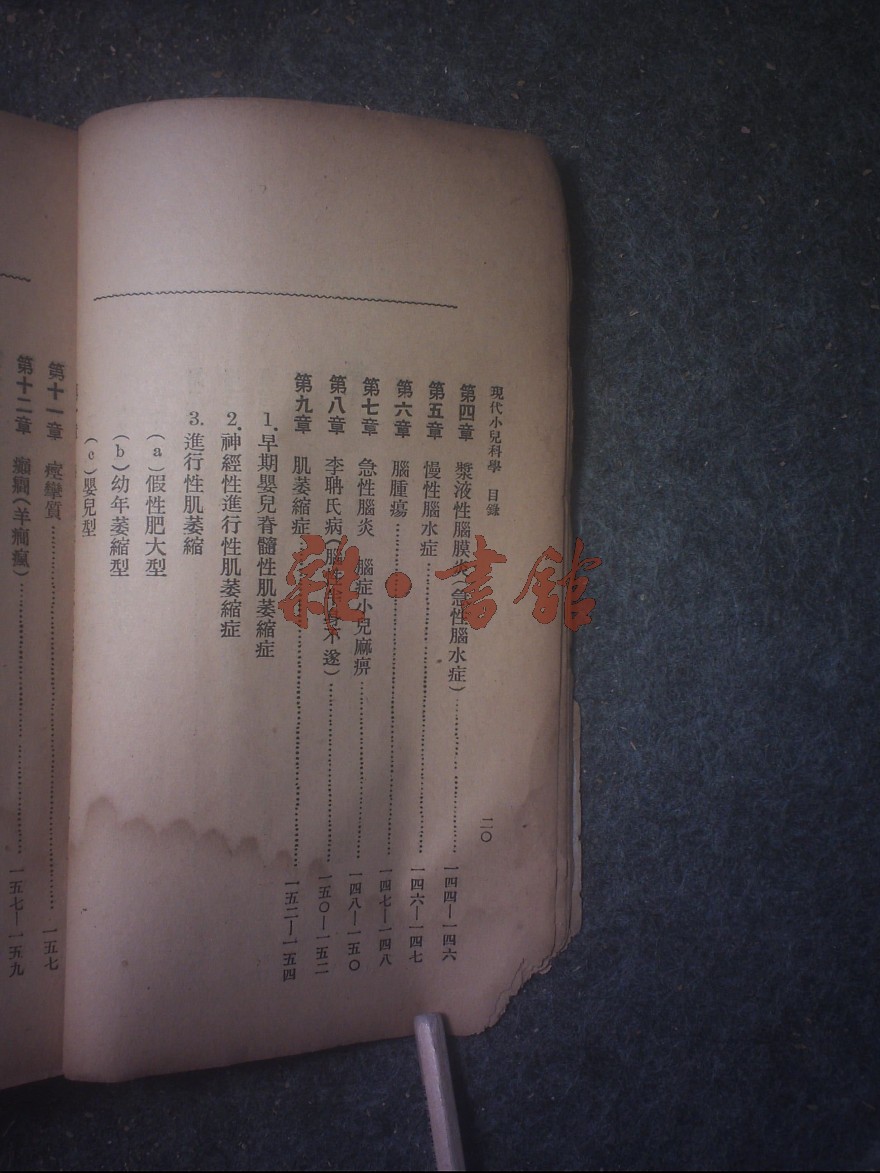 現代小兒科學 目錄 二〇
第四章 漿液性腦膜炎(急性腦水症)……一四四—一四六
第五章 慢性腦水症……一四六—一四七
第六章 腦腫瘍……一四七—一四八
第七章 急性腦炎 腦症小兒麻痹……一四八—一五〇
第八章 李聃氏病(腦性 身不遂)……一五〇—一五二
第九章 肌萎縮症……一五二—一五四
1.早期嬰兒脊髓性肌萎縮症
2.神經性進行性肌萎縮症
3.進行性肌萎縮
(a)假性肥大型
(b)幼年萎縮型
(c)嬰兒型
第十一章 痙攣質……一五七
第十二章 癲癇(羊癇瘋)……一五七—一五九
雜·書館